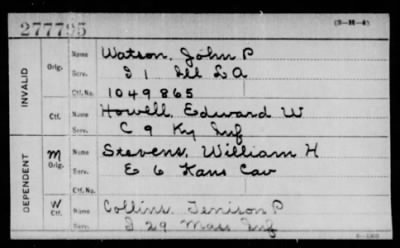 277795
(3-H-4)
INVALID
Orig.
Name Watson, John P
Serv. I 1 Ill L A
Ctf. No. 1049865
Ctf.
Name Howell, Edward W
Serv. C 9 Ky Inf
DEPENDENT
M
Orig.
Name Stevens, William H
Serv. E 6 Kans Cav
Ctf. No.
W
Ctf.
Name Collins, Tenison P
Serv. I 29 Mass Inf